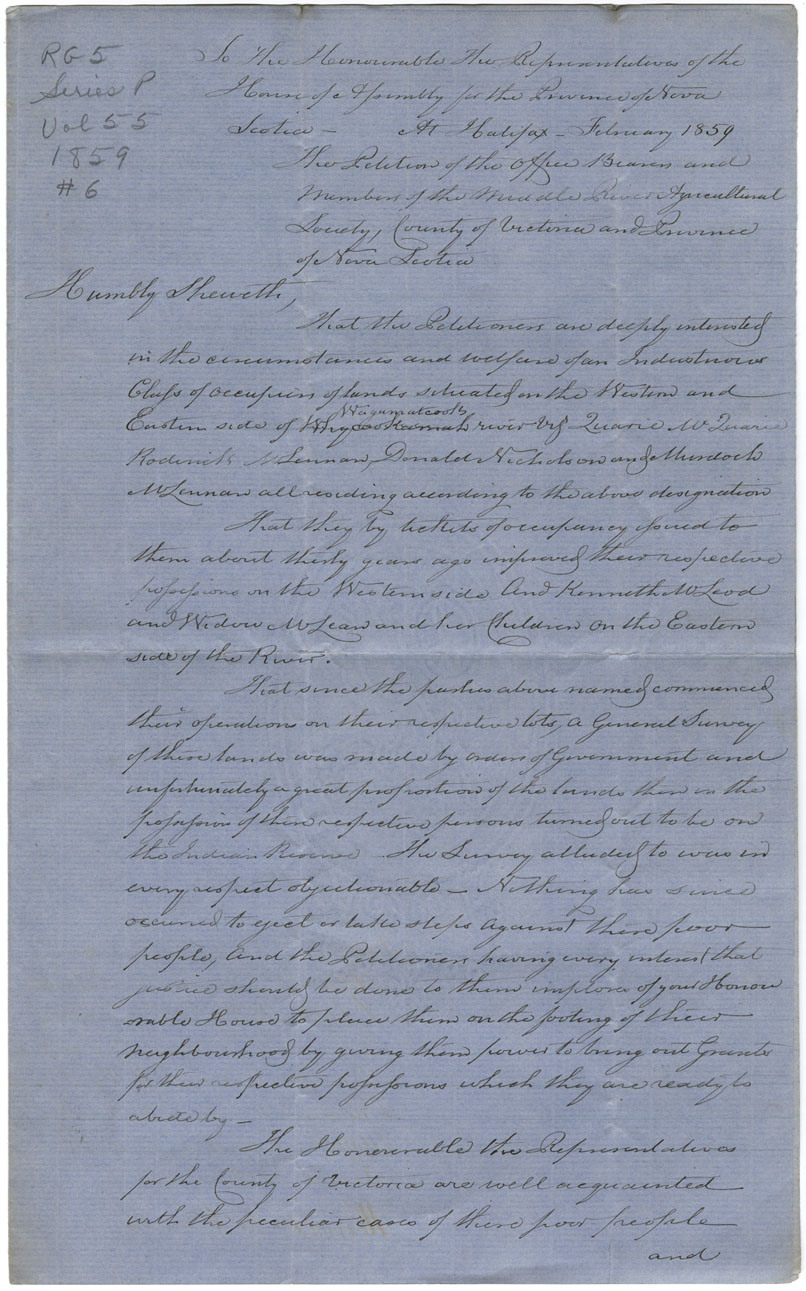 RG 5
Series P
Vol 55
1859
# 6
To The Honourable The Representatives of the
House of Assembly for the Province of Nova
Scotia - At Halifax - February 1859
The Petition of the Office Bearers and
Members of the Middle River Agricultural
Society, County of Victoria and Province
of Nova Scotia
Humbly Sheweth,
That the Petitioners are deeply interested
in the circumstances and welfare of an Industrious
Class of occupiers of lands situated on the Western and
Wagamatcook
Eastern side of river Viz Quarie McQuarie
Roderick McLennan, Donald Nicholson and Murdoch
McLennan all residing according to the above designation
That they by tickets of occupancy issued to
them about thirty years ago improved their respective
possessions on the Western side And Kenneth McLeod
and Widow McLean and her Children on the Eastern
side of the River.
That since the parties above named commenced
their operations on their respective lots, a General Survey
of these lands was made by orders of Government and
unfortunately a great proportion of the lands then in the
possession of these respective persons turned out to be on
the Indian Reserve The Survey alluded to was in
every respect objectionable - Nothing has since
occured to eject or take steps against these poor
people, And the Petitioners having every interest that
justice should be done to them implore of your Honou
rable House to place them on the footing of their
neighbourhood by giving them power to bring out Grants
for their respective possessions which they are ready to
abide by -
The Honourable the Representatives
for the County of Victoria are well acquainted
with the peculiar cases of these poor people
and